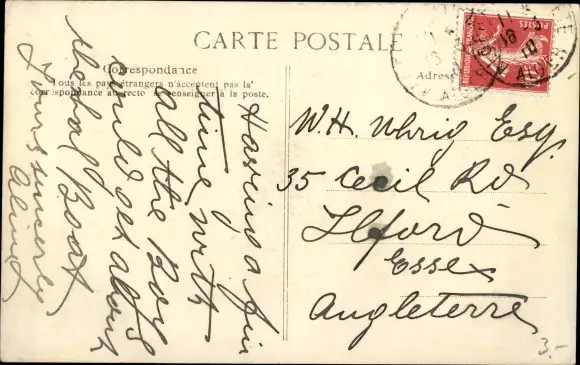 CARTE POSTALE
Correspondance
Tous les pays étrangers n'acceptent pas la
correspondance au recto se renseigner à la poste.
Adres
REPUBLIQUE FRANÇAISE
POSTES
10
Having a fine
time with
all the Boys
could set about
the bally Boat
Yours sincerely
W.H. Uhrig Esq.
35 Cecil Rd
Ilford
Essex
Angleterre
3.-